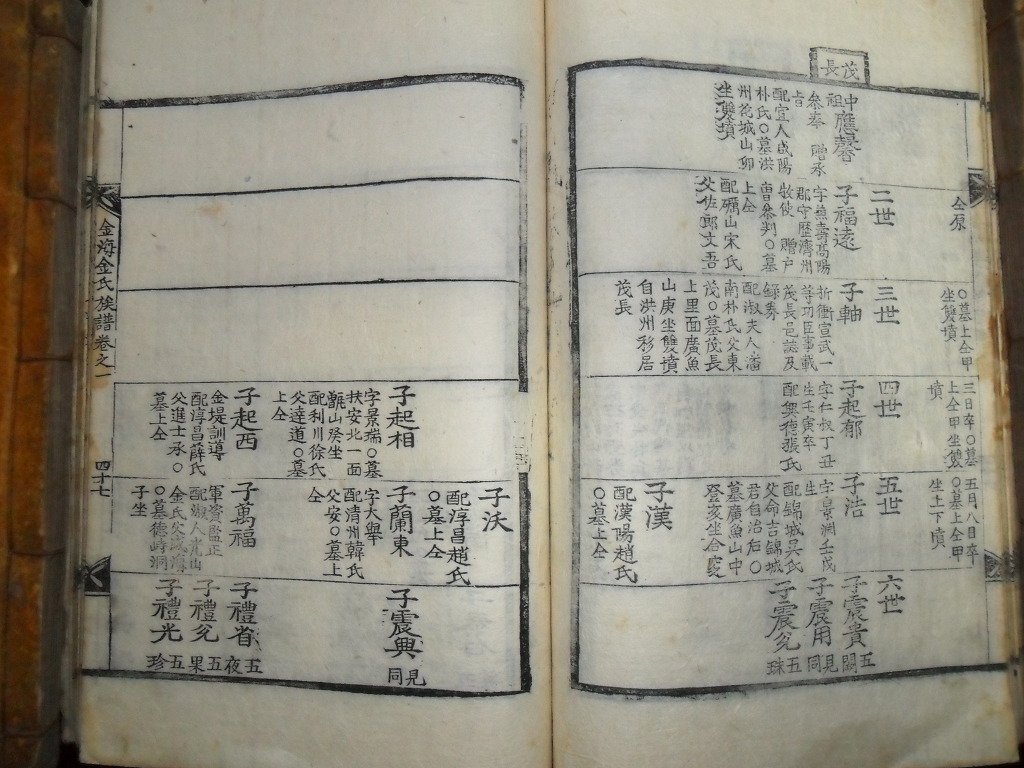 茂長
仝原
○墓上仝甲
坐雙墳
三日卒○墓
上仝甲坐雙
墳
五月八日卒
○墓上仝甲
坐土下墳
中應馨
祖
參奉 贈承
旨
配宜人咸陽
朴氏○墓洪
州花城山卯
坐雙墳
二世
子福遠
字無壽高陽
郡守歷濟州
敎使 贈戶
曹參判○墓
上仝
配礪山宋氏
父佐郞文吾
三世
子軸
折衝宣武一
等功臣事載
茂長邑誌及
錄券
配淑夫人潘
南朴氏父東
茂○墓茂長
上里面廣魚
山庚坐雙墳
自洪州移居
茂長
四世
子起郁
字仁叔丁丑
生壬寅卒
配興德張氏
五世
子浩
字景淵壬戌
生
配錦城吳氏
父命吉錦城
君自治后○
墓廣魚山中
登亥坐合窆
子漢
配漢陽趙氏
○墓上仝
六世
子震貴 五閼
子震用 見同
子震兊 五珠
子起相
字景瑞○墓
扶安北一面
甑山癸坐
配利川徐氏
父達道○墓
上仝
子起西
金堤訓導
配淳昌薛氏
父進士承○
墓上仝
子沃
配淳昌趙氏
○墓上仝
子蘭東
字大擧
配清州韓氏
父安○墓上
仝
子萬福
軍資監正
配淑人光山
金氏父成海
○墓德蒔洞
子坐
子震興 見同
子禮省 五夜
子禮兊 五果
子禮光 五珍
金海金氏族譜卷之一
四十七